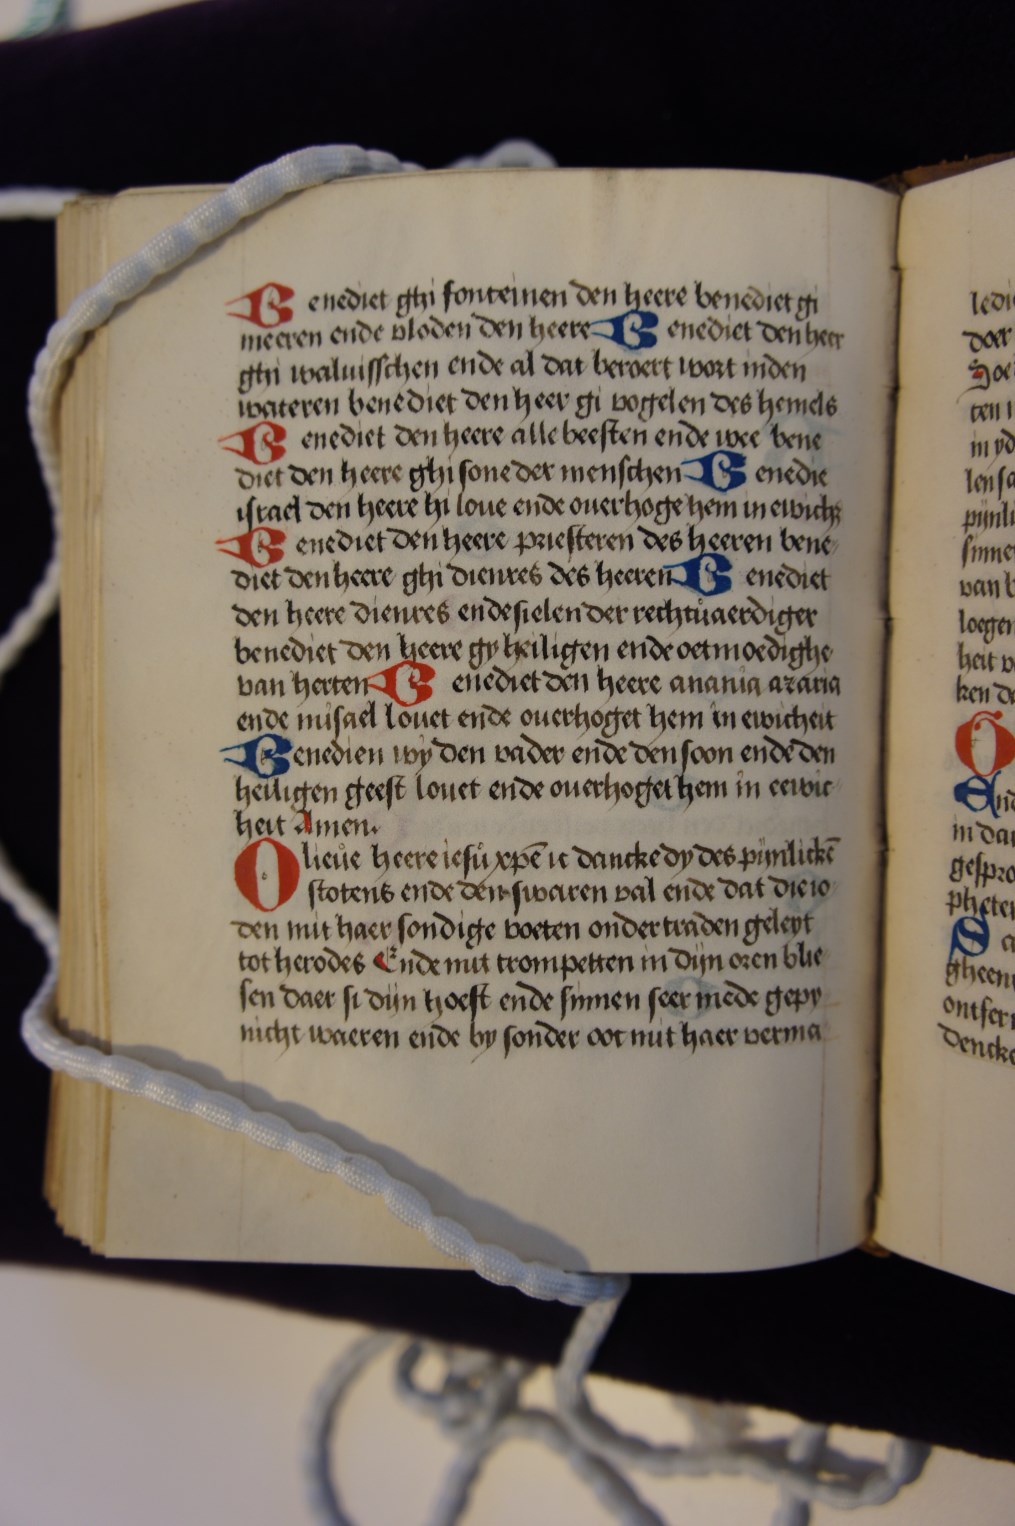 Benediet ghi fonteinen den heere benediet gi
meeren ende vloden den heere Benediet den heer
ghi waluisschen ende al dat beroert wort inden
wateren benediet den heer gi vogelen des hemels
Benediet den heere alle beesten ende wee bene
diet den heere ghi sone der menschen Benedie
israel den heere hi loue ende ouerhoge hem in ewich
Benediet den heere priesteren des heeren bene
diet den heere ghi dienres des heeren Benediet
den heere dienres ende sielen der rechtuaerdiger
benediet den heere gy heiligen ende oetmoedighe
van herten Benediet den heere anania azaria
ende misael louet ende ouerhoget hem in ewicheit
Benedien wy den vader ende den soon ende den
heiligen geest louet ende ouerhoget hem in eewic
heit Amen.
O lieue heere iesu xpē ic dancke dy des pijnlickē
stotens ende den swaren val ende dat die io
den mit haer sondige voeten onder traden geleyt
tot herodes Ende mit trompetten in dijn oren blie
sen daer si dijn hoeft ende sinnen seer mede gepy
nicht waeren ende by sonder oec mit haer verma
in yd
pijnli
van b
loegen
heit
O
in da
gespro
pheten
S
gheen
ontfer
dencke